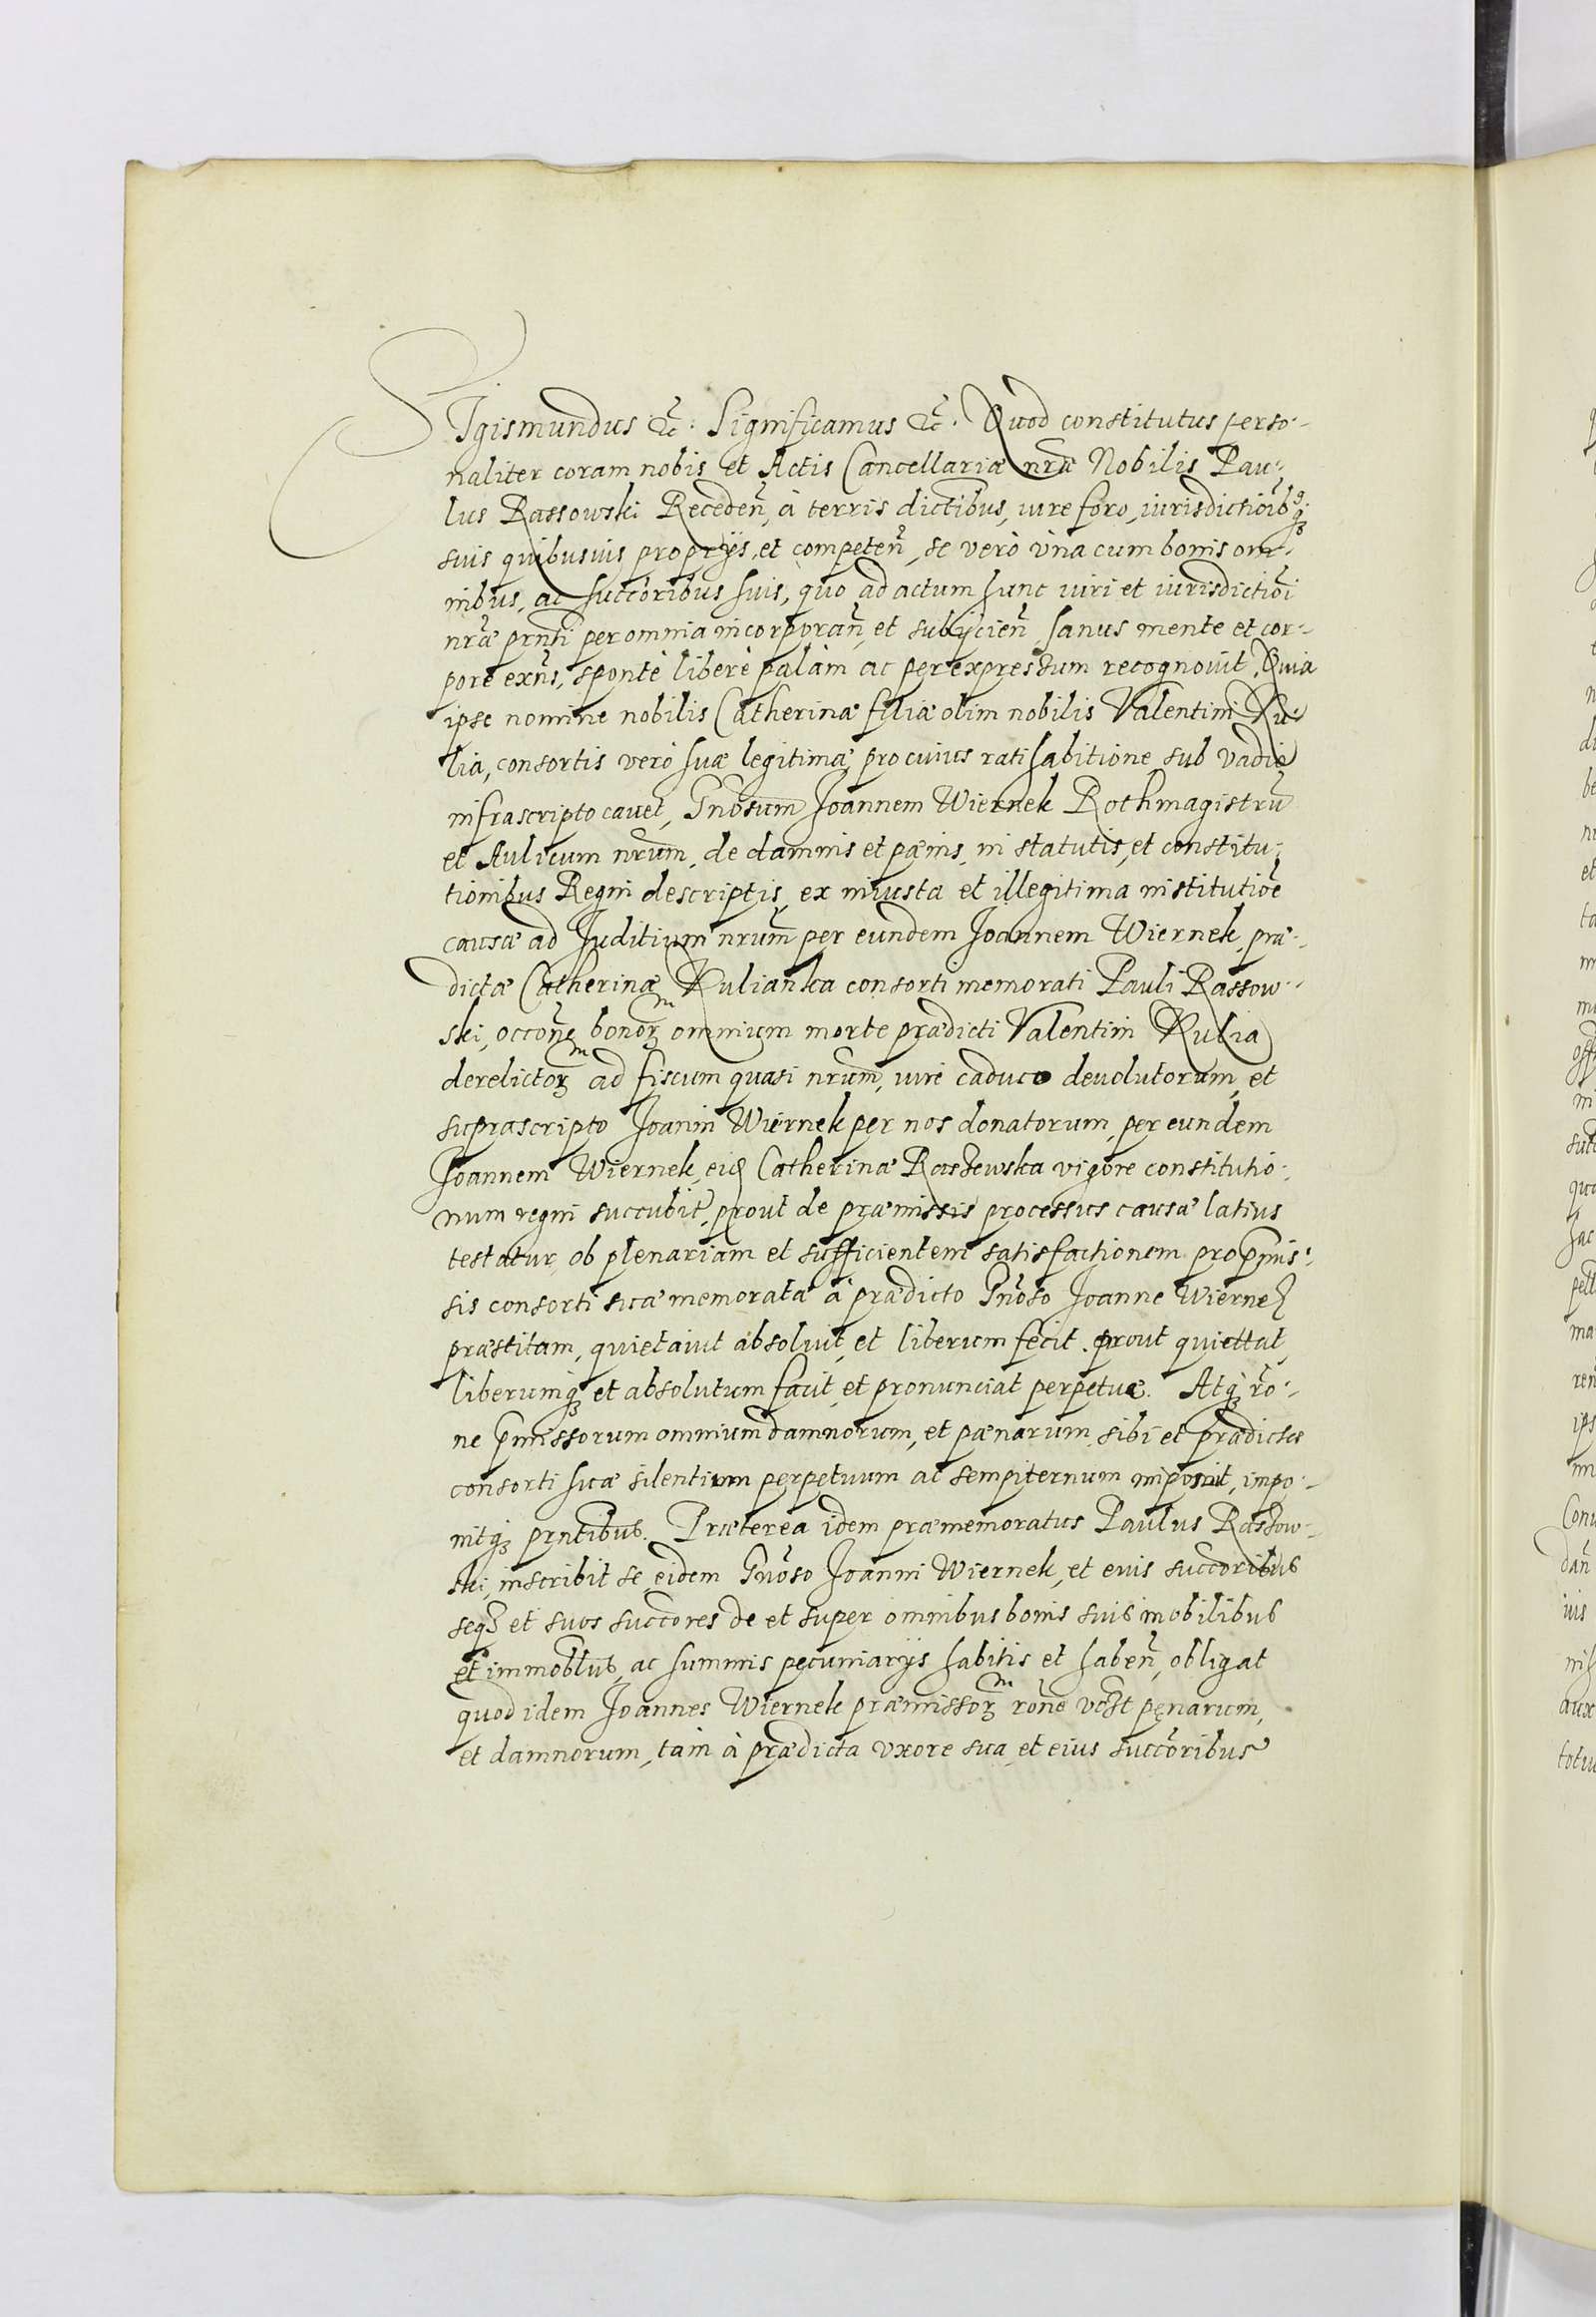 SIgismundus &c̃. Significamus &c̃. Quod constitutus perso-
naliter coram nobis et Actis Cancellariæ nrã Nobilis Pau-
lus Rassowski Recedeñ, à terris dictibus, iure foro, iurisdictioĩbq̃
suis quibusuis proprijs, et competeñ, se verò vna cum bonis om-
nibus, ac succõribus suis, quo ad actum hunc iuri et iurisdictiõi
nrãe prñti per omnia incorporañ, et subijcieñ, sanus mente et cor-
pore exñs, spontè liberè palàm ac per expressum recognouit. Quia
ipse nomine nobilis Catherinæ filiæ olim nobilis Valentini Ku-
lia, consortis verò suæ legitimæ, pro cuius ratihabitione sub vadio
infrascripto cauet, Gñosum Joannem Wiernek Rothmagistrũ
et Aulicum nrũm, de damnis et pænis, in statutis, et constitu-
tionibus Regni descriptis, ex iniusta et illegitima institutiõe
causæ ad Juditium nrũm per eundem Joannem Wiernek, præ-
dictæ Catherinæ Kulianka consorti memorati Pauli Rassow-
ski, occõne bonoꝝm omnium morte prædicti Valentini Kulia
derelictoꝝm ad fiscum quasi nrũm, iure caduco deuolutorum, et
suprascripto Joanni Wiernek per nos donatorum, per eundem
Joannem Wiernek, eid Catherinæ Raszewska vigore constitutio-
num regni succubit, prout de præmissis processus causæ latius
testatur, ob plenariam et sufficientem satisfactionem pro p̃mis-
sis consorti suæ memoratæ à prædicto Gñoso Joanne Wiernek
præstitam, quietauit absoluit, et liberum fecit. prout quiettat,
liberumq; et absolutum facit, et pronunciat perpetuæ. Atq; rõ-
ne p̃missorum omnium damnorum, et pænarum, sibi et prædictæ
consorti suæ silentium perpetuum ac sempiternum imposuit, impo-
nitq; prñtibus. Præterea idem præmemoratus Paulus Raszow-
ski, inscribit se eidem Gñoso Joanni Wiernek, et euis succoribus
seq; et suos succõres de et super omnibus bonis suis mobilibus
et immobl̃ibus, ac summis pecuniarijs habitis et habeñ, obligat
quod idem Joannes Wiernek præmissoꝝm rõne vid̃t pęnarum,
et damnorum, tàm à prædicta vxore sua, et eius succõribus